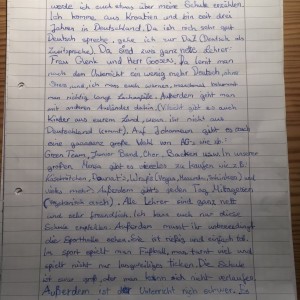 werde ich auch etwas über meine Schule erzählen.
Ich komme aus Kroatien und bin seit drei
Jahren in Deutschland. Da ich noch sehr gut
Deutsch spreche, gehe ich zur DaZ (Deutsch als
Zweitsprache). Da sind zwei ganz nette Lehrer:
Frau Schenk und Herr Goosens. Da lernt man
nach dem Unterricht ein wenig mehr Deutsch, ohne
Stress und ich muss euch warnen, manchmal bekommt
man richtig lange Lachanfälle. Außerdem geht man
mit anderen Ausländer dahin. (Vielleicht gibt es auch
Kinder aus eurem Land, wenn ihr nicht aus
Deutschland kommt). Auf Johanneum gibt es auch
eine ganze große Wahl von AG's wie z.b:
Green Team, Junior Band, Chor, Backen usw. In unserer
großen Mensa gibt es zu
Käsebrötchen, Donut's, Wraps (Vegan, Hawaii, Schinken) und
vieles mehr. Außerdem gibt's jeden Tag Mittagessen
(Vegetarisch auch). Alle Lehrer sind ganz nett
und sehr freundlich. Ich kann euch nur diese
Schule empfehlen. Außerdem müsst ihr unbedingt
die Sporthalle sehen. Sie ist riesig und einfach toll.
Im Sport spielt man Fußball, man tanzt und
spielt nicht nur langweiliges Ticken. Die Schule
ist sehr groß, aber man kann sich nicht verlaufen.
Außerdem ist der Unterricht nicht schwer. Es